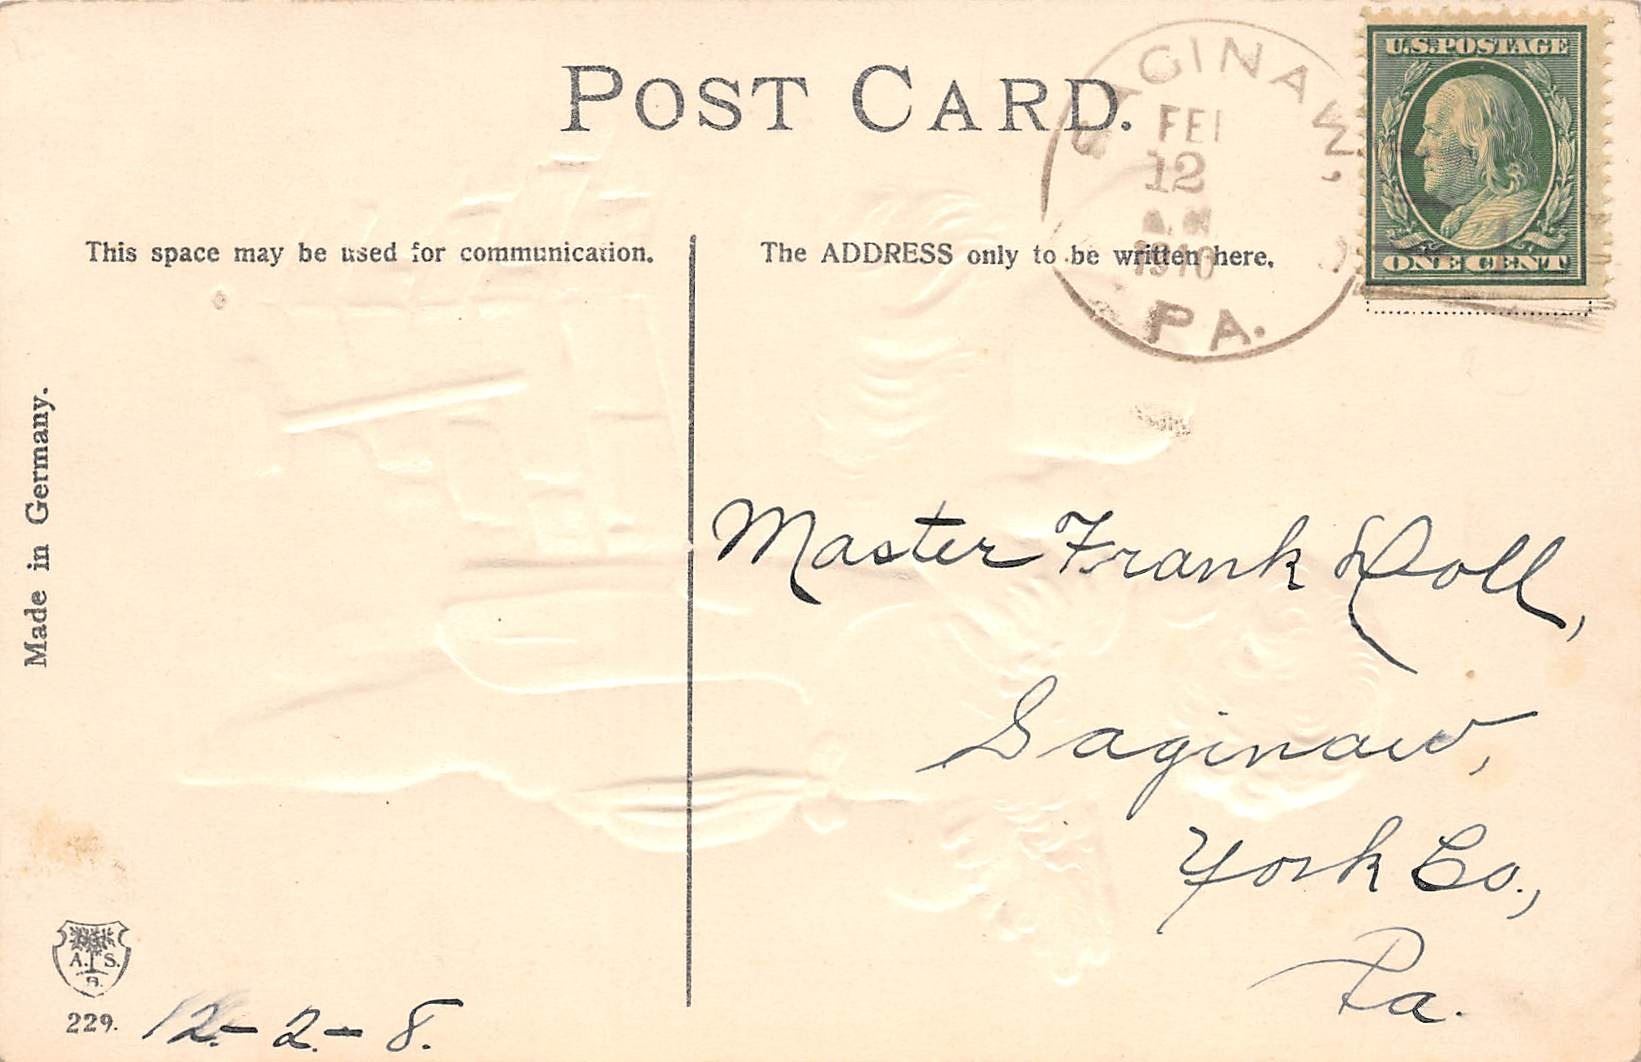 POST CARD.
SAGINAW,
FEB
12
A.M
1910
PA.
U.S. POSTAGE
ONE CENT
This space may be used for communication.
The ADDRESS only to be written here.
Made in Germany.
Master Frank Doll,
Saginaw,
York Co.,
Pa.
A. S.
B.
229.
12-2-8.